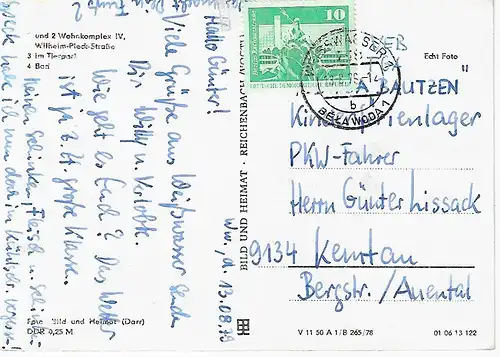 und 2 Wohnkomplex IV,
Wilhelm-Pieck-Straße
3 im Tierpark
4 Bad
Foto: Bild und Heimat (Darr)
DDR 0,25 M
Ww, d. 13.08.79
Hallo Günter!
Viele Grüße aus Weißwasser senden
Dir Willy u. Verlobte.
Wie geht es Euch? Das Wetter
ist z. Zt. große Klasse.
BILD UND HEIMAT · REICHENBACH (VOGTL)
10
WEISSWASSER 1
b
BĚŁA WODA 1
VEB
Echt Foto
BAUTZEN"
Kinderferienlager
PKW-Fahrer
Herrn Günter Lissack
9134 Kemtau
Bergstr./Auental
V 11 50 A 1/B 265/78
01 06 13 122